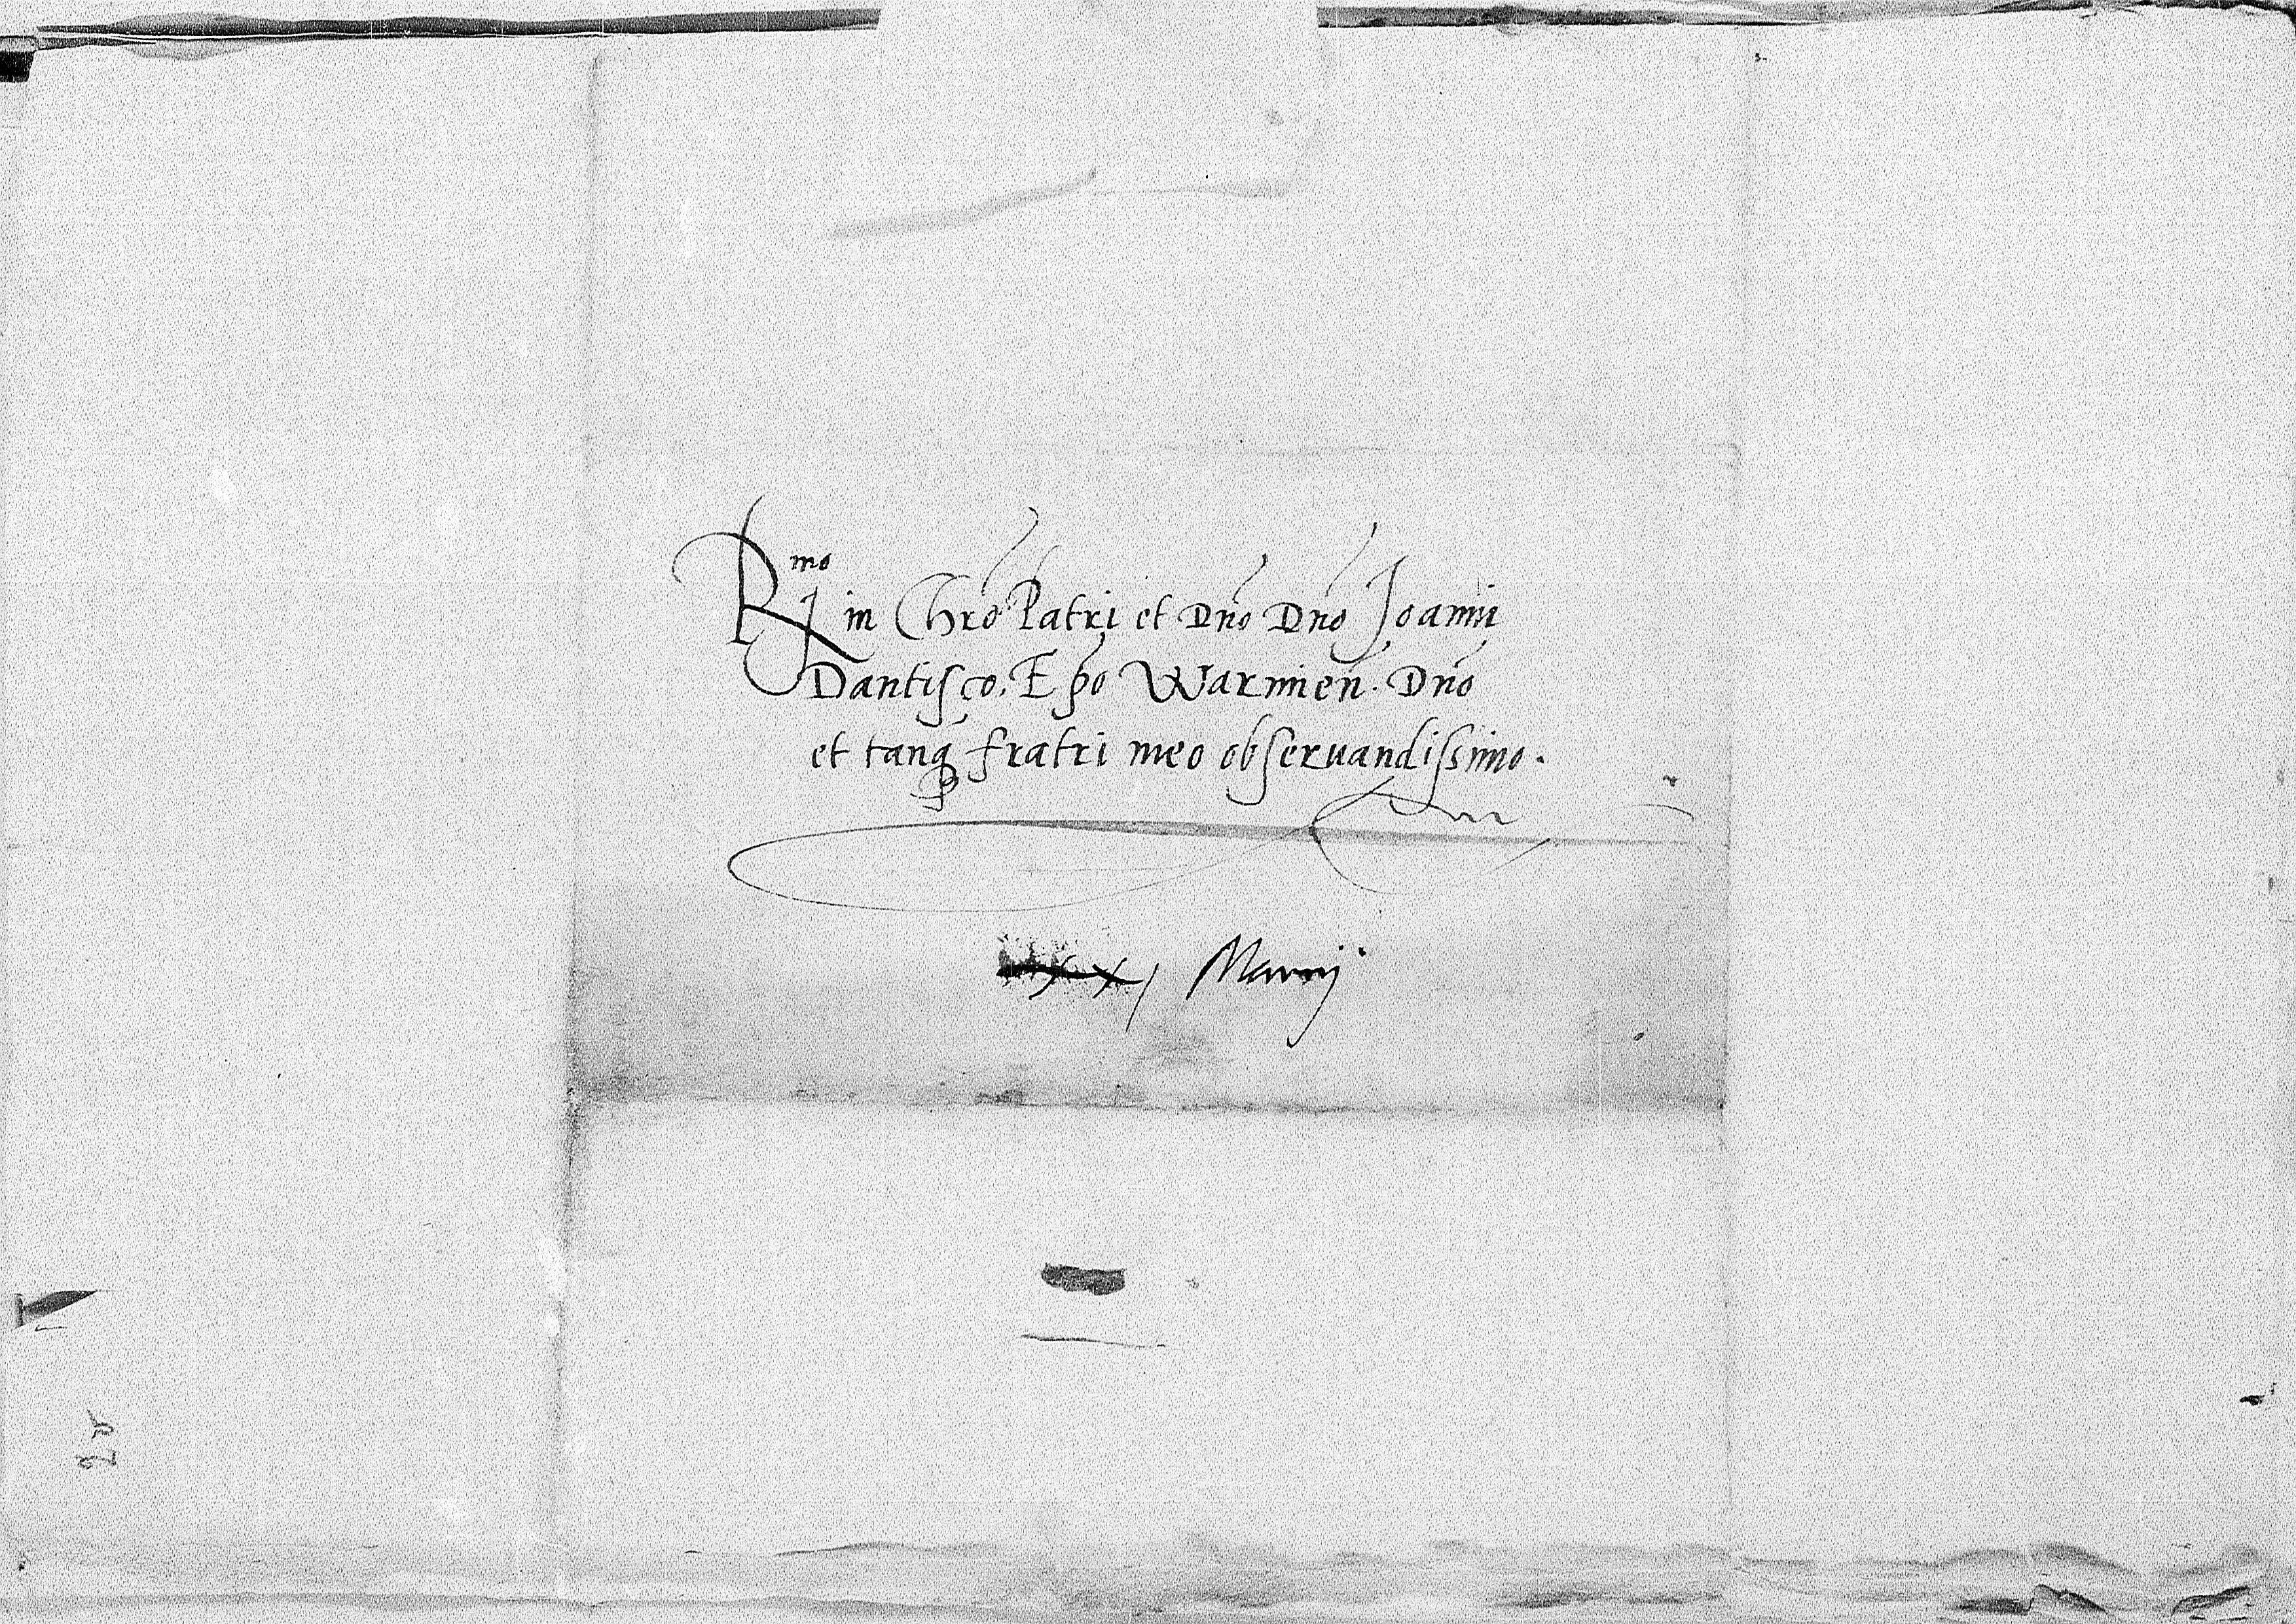 Rmo in Chro Patri et Dno Dno Joanni
Dantisco. Epo Warmien. Dno
et tanq fratri meo obseruandissimo.